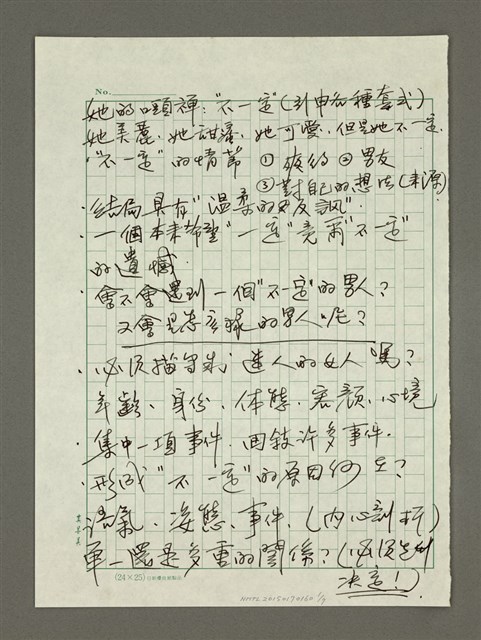 No.
她的口頭禪：“不一定”（引申各種套式）
她美麗．她甜蜜．她可愛．但是她不一定．
“不一定”的情節 ①爽約 ②男友
③對自己的想法（來源）
·結局具有“溫柔的反諷”．
·一個本來希望“一定”竟爾“不一定”
的遺憾．
·會不會遇到一個“不一定”的男人？
又會是怎麼樣的男人呢？
·必須描寫成迷人的女人嗎？
年齡、身份、体態、容顏、心境
·集中一項事件．回敘許多事件．
·形成“不一定”的原因何在？
語氣、姿態、事件．（內心剖析）
單一還是多重的關係？（必須先
決定！）
(24×25)
NMTL20150170160 1/9